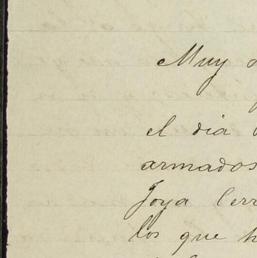 Muy
el dia
armados
Joya Cerr
los que h